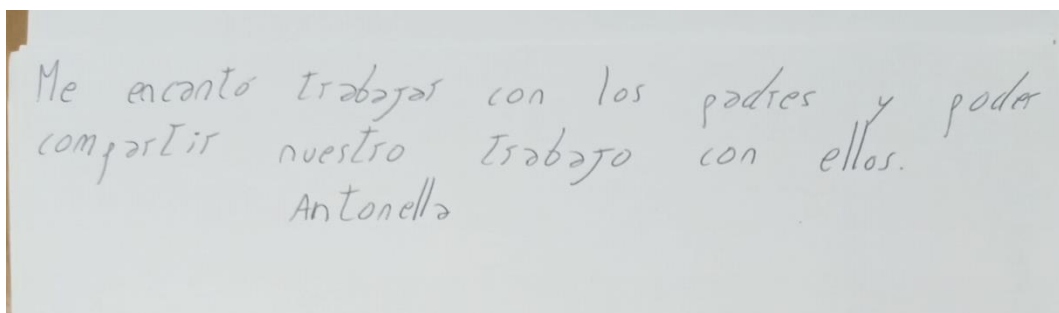 Me encantó trabajar con los padres y poder
compartir nuestro trabajo con ellos.
Antonella